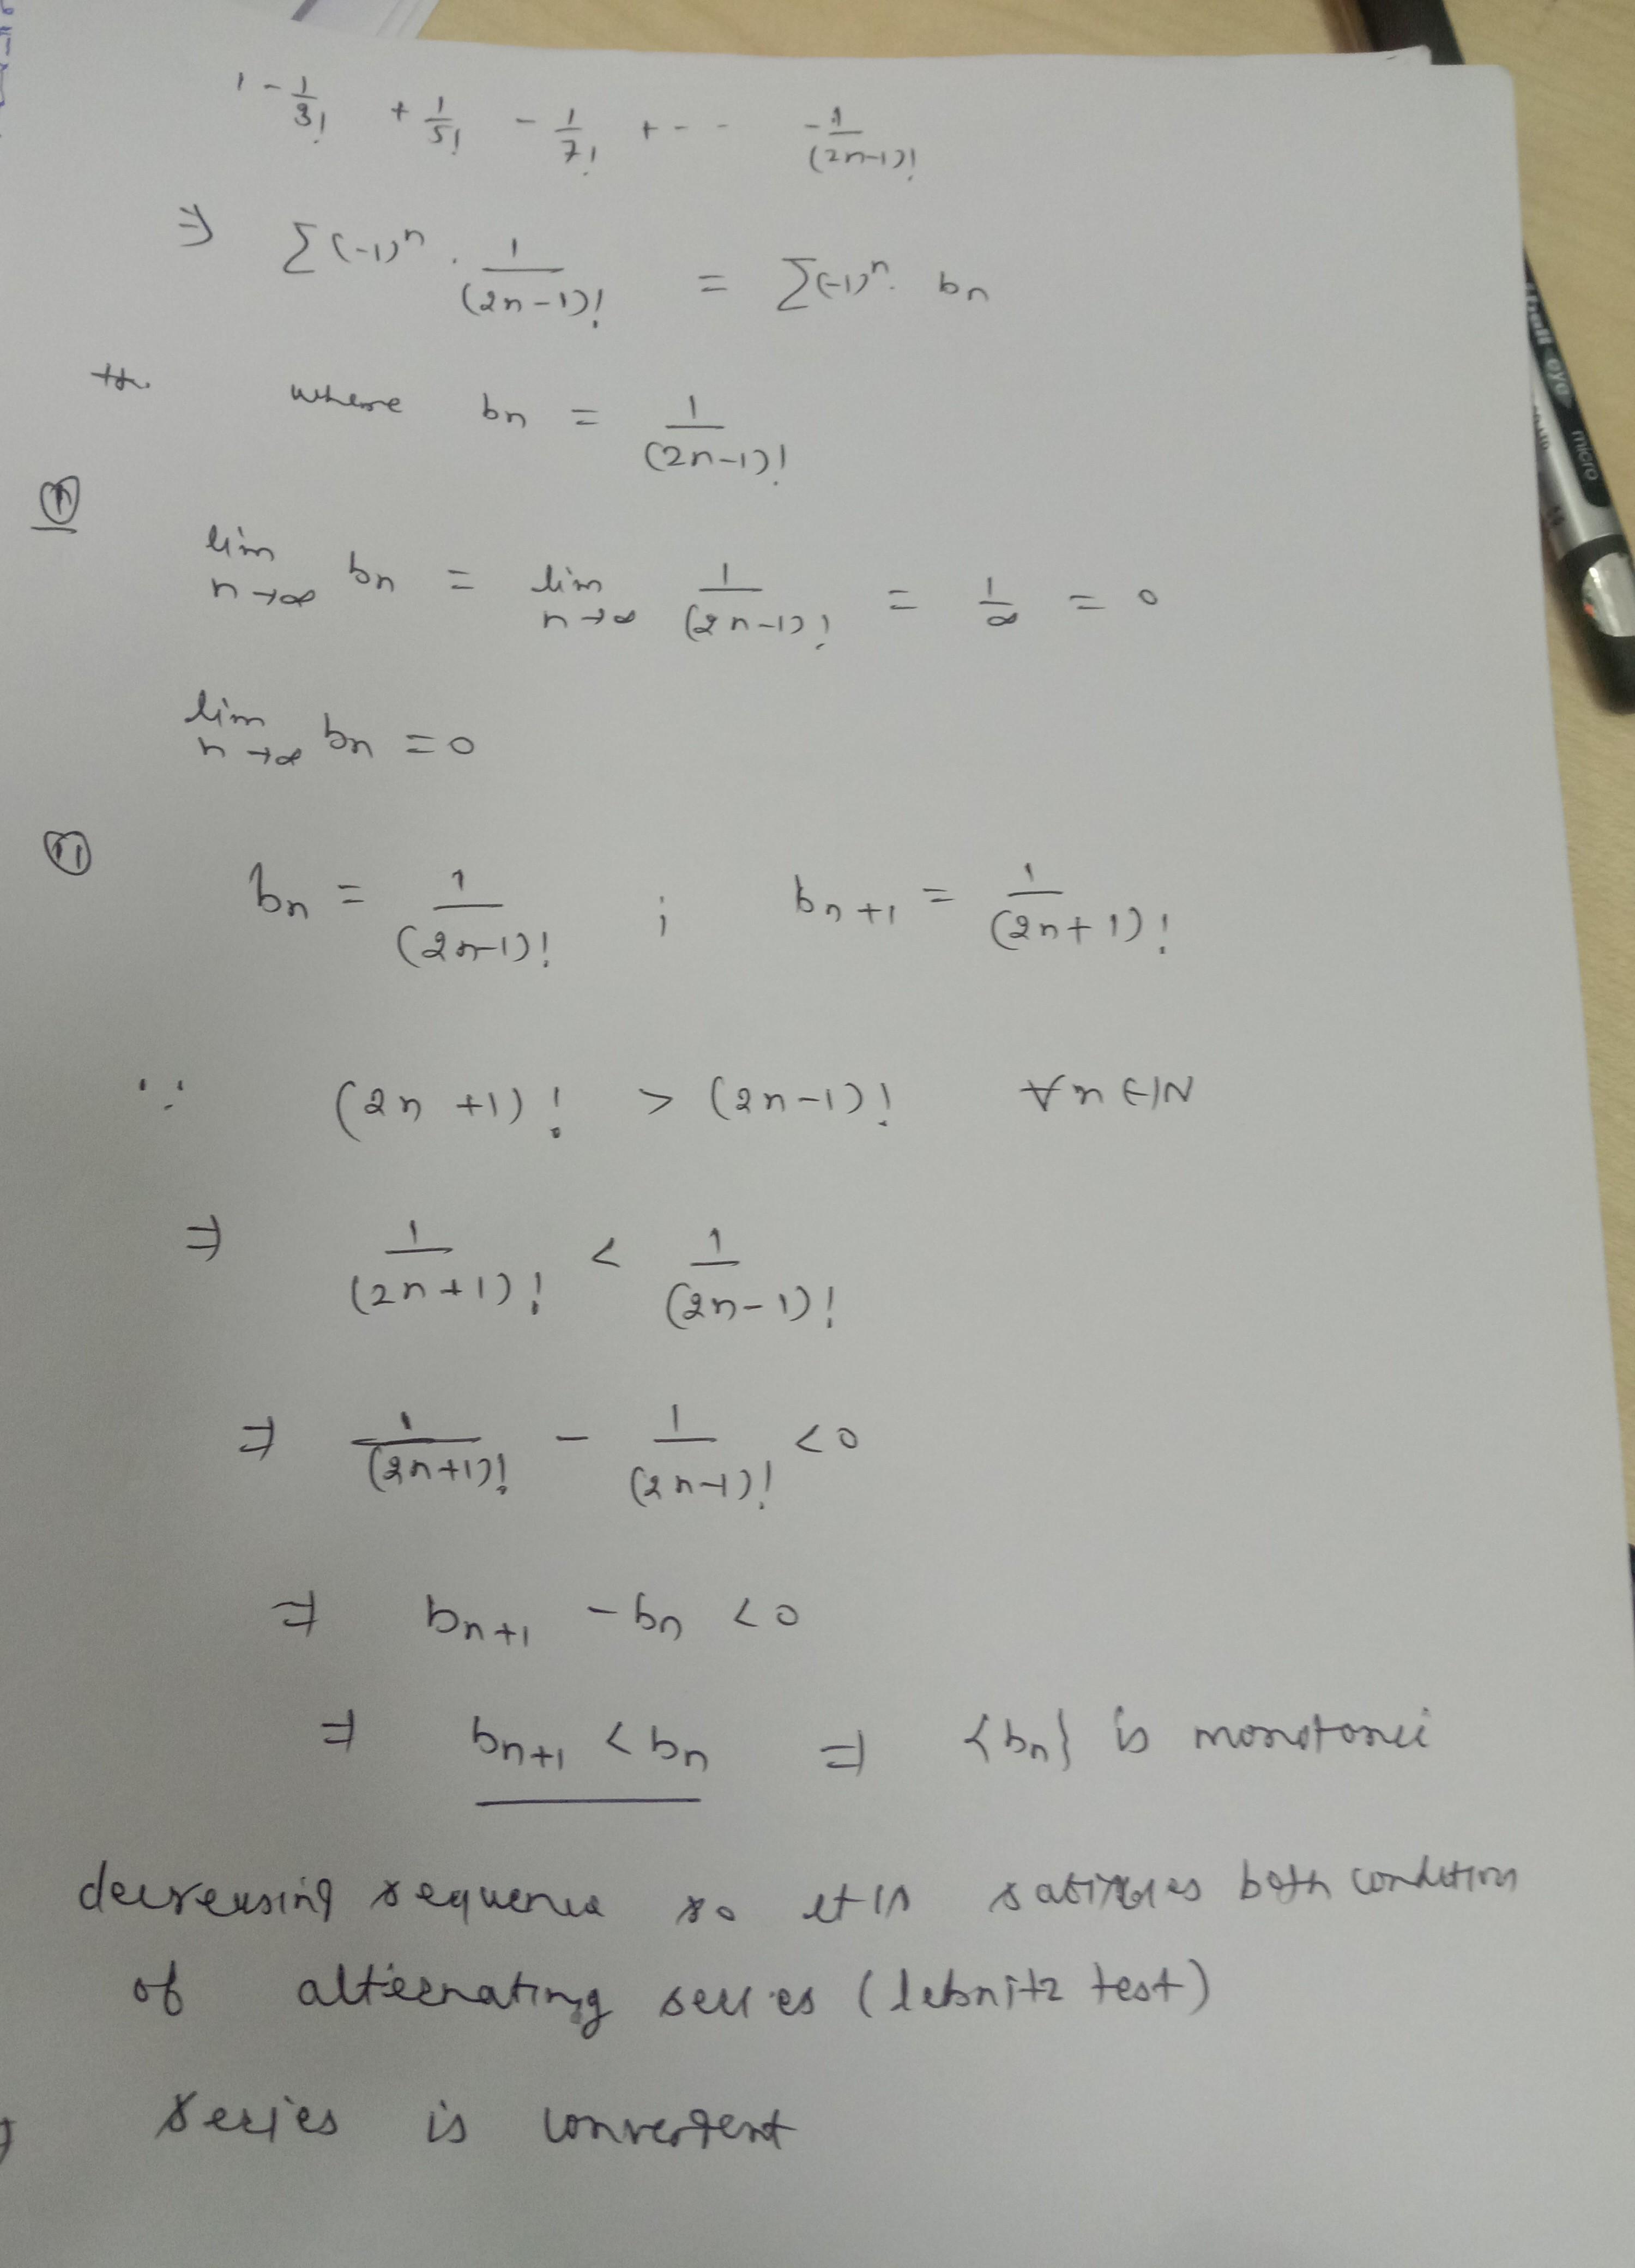 1 - 1/3! + 1/5! - 1/7! + - - -1/(2n-1)!
⇒ Σ(-1)ⁿ · 1/(2n-1)! = Σ(-1)ⁿ · bₙ
where bₙ = 1/(2n-1)!
lim n→∞ bₙ = lim n→∞ 1/(2n-1)! = 1/∞ = 0
lim n→∞ bₙ = 0
bₙ = 1/(2n-1)! ; bₙ₊₁ = 1/(2n+1)!
∵ (2n+1)! > (2n-1)! ∀ n ∈ ℕ
⇒ 1/(2n+1)! < 1/(2n-1)!
⇒ 1/(2n+1)! - 1/(2n-1)! < 0
⇒ bₙ₊₁ - bₙ < 0
⇒ bₙ₊₁ < bₙ ⇒ {bₙ} is monotonic
decreasing sequence so it is satisfies both condition
of alternating series (lebnitz test)
series is convergent
eye micro